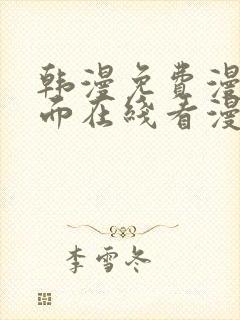 韩漫免费漫
而在线看漫
李雪冬